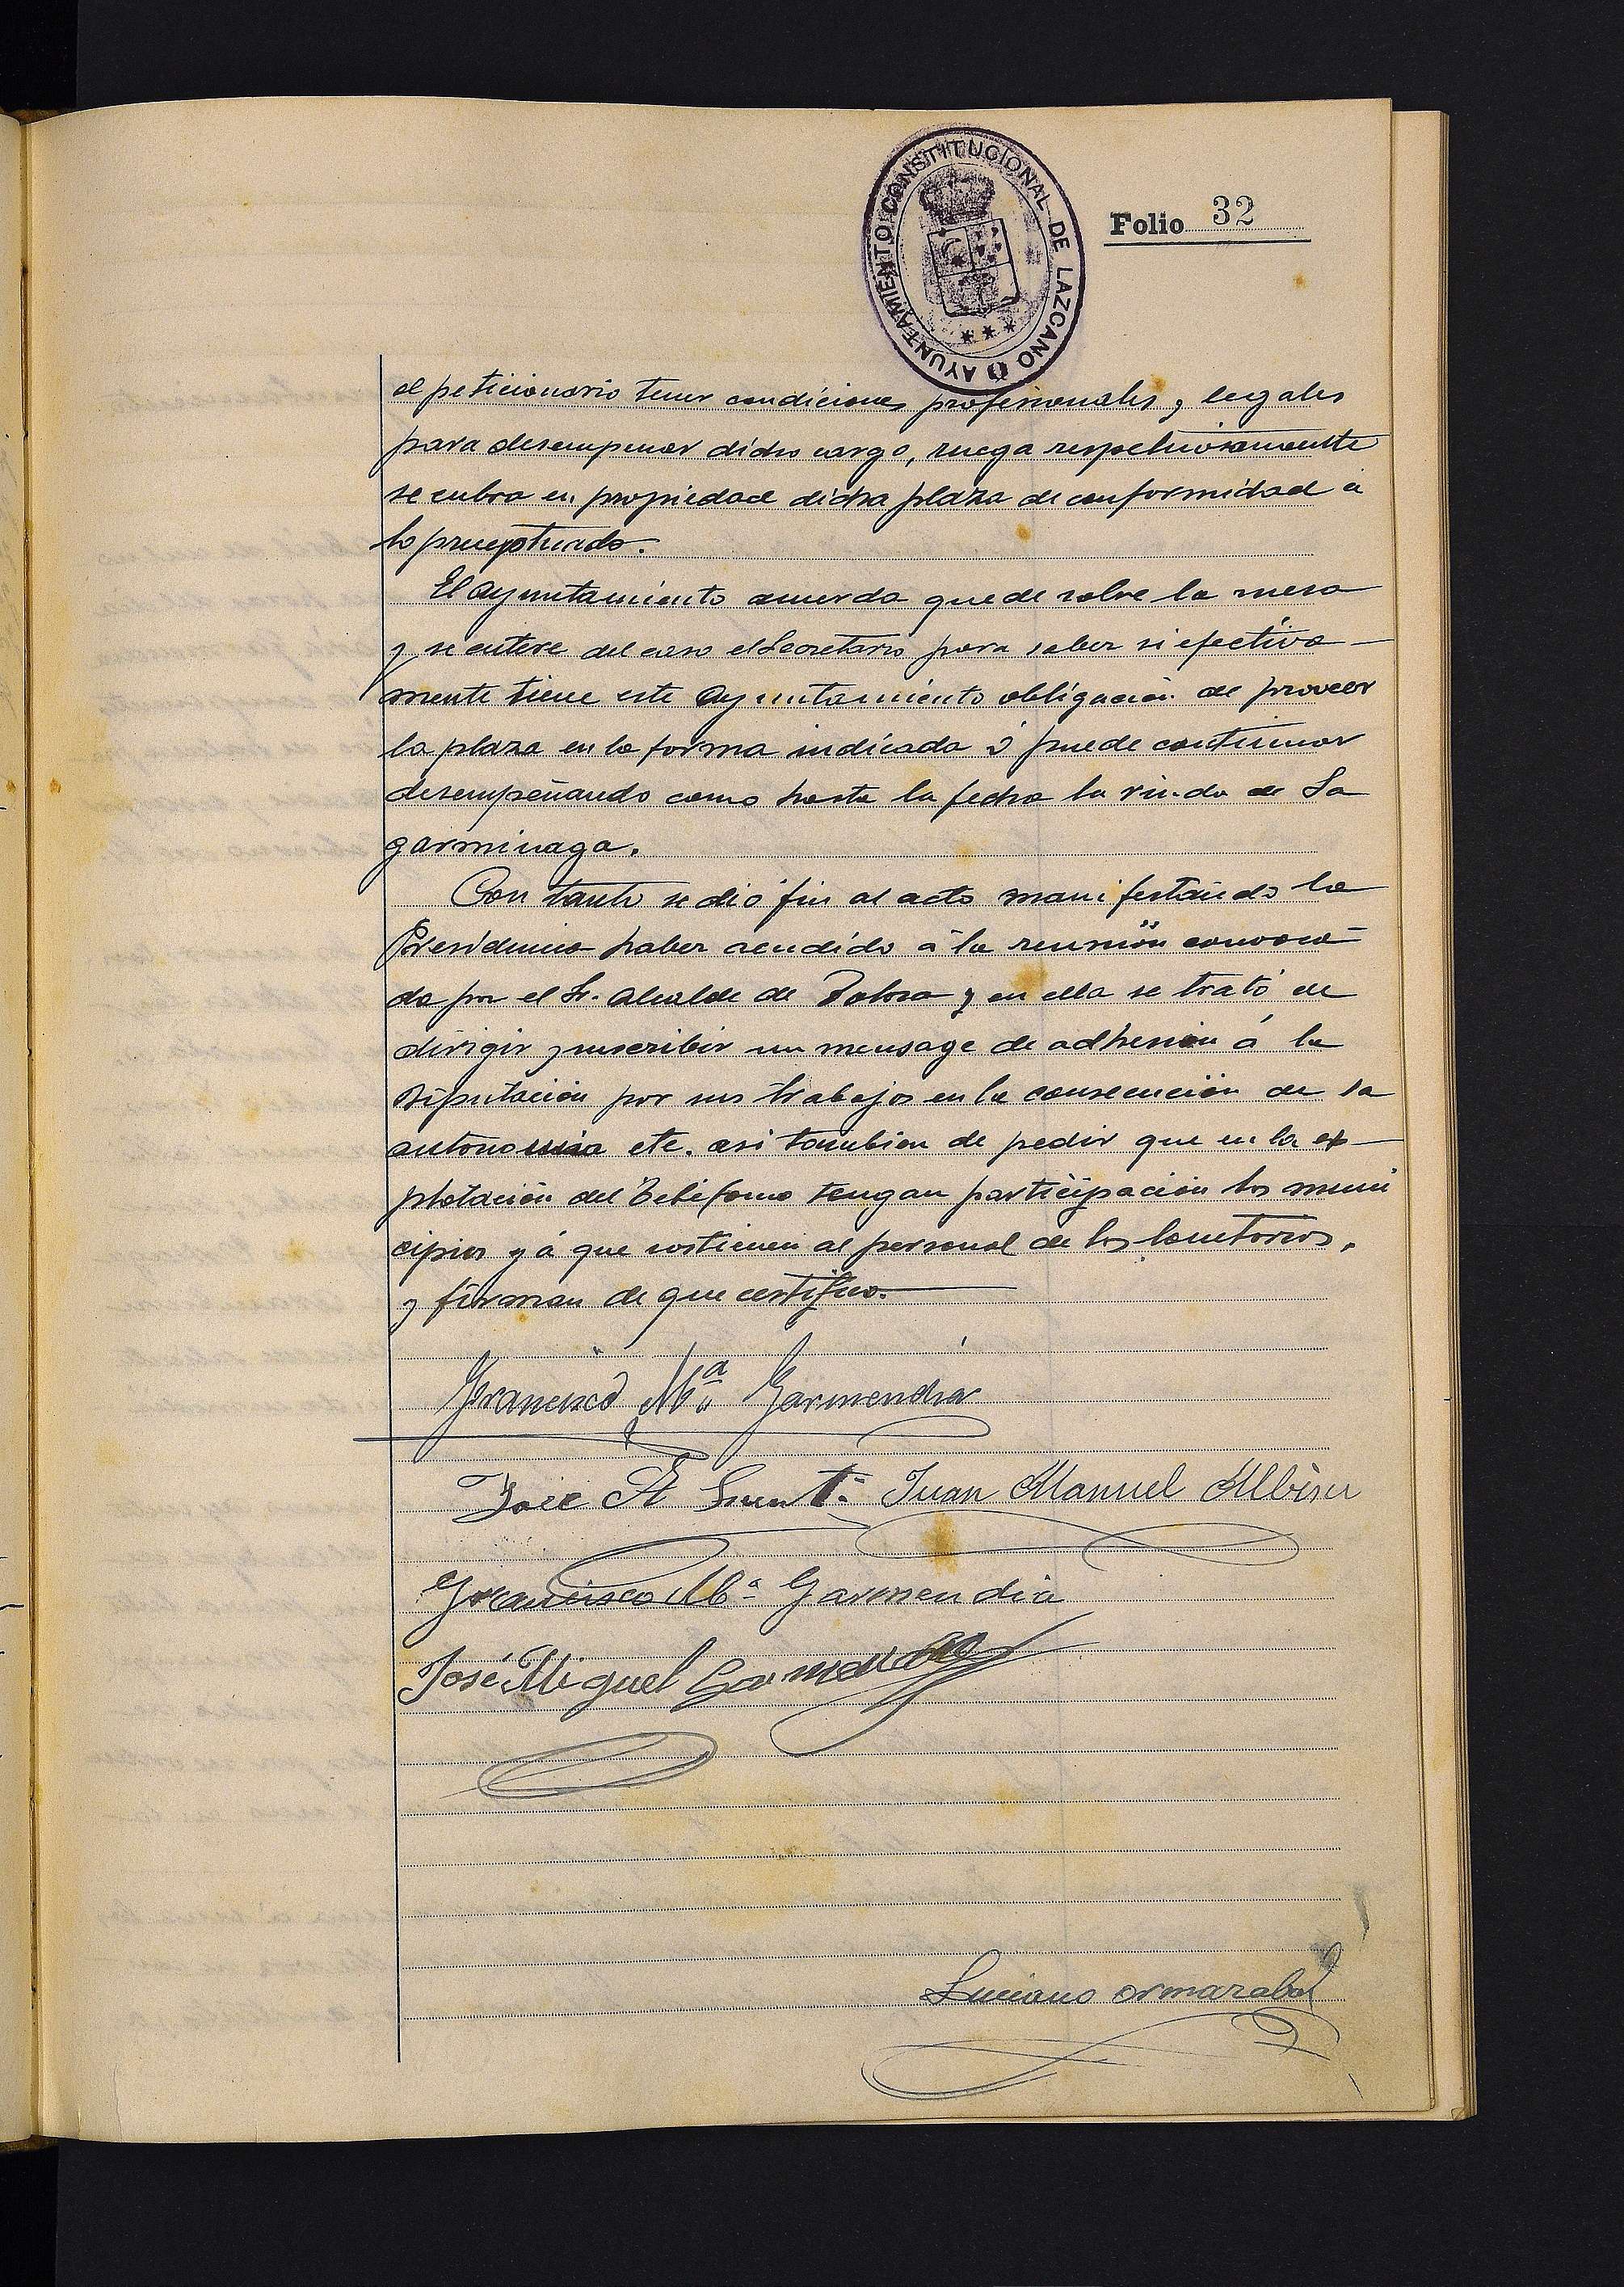 AYUNTAMIENTO CONSTITUCIONAL DE LAZCANO
Folio 32
el peticionario tener condiciones profesionales y legales
para desempeñar dicho cargo, ruega respetuosamente
se cubra en propiedad dicha plaza de conformidad á
lo preceptuado.
El Ayuntamiento acuerda quede sobre la mesa
y se entere del caso el Secretario para saber si efectiva-
mente tiene este Ayuntamiento obligación de proveer
la plaza en la forma indicada ó puede continuar
desempeñando como hasta la fecha la viuda de La
garminaga.
Con tanto se dió fin al acto manifestando la
Presidencia haber acudido á la reunión convoca-
da por el Sr. Alcalde de Tolosa y en ella se trató de
dirigir y suscribir un mensage de adhesión á la
Diputación por sus trabajos en la consecución de la
autonomia etc. asi tambien de pedir que en la ex-
plotación del Teléfono tengan participación los muni
cipios ya que sostienen al personal de los locutorios,
y firman de que certifico.
Francisco Mª Garmendia
José A Juan Manuel Albisu
Francisco Mª Garmendia
José Miguel Garmendia
Luciano Ormazabal